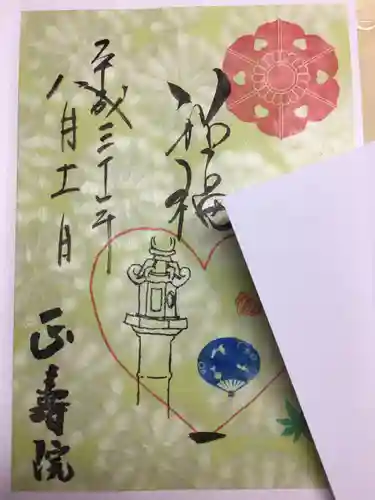 祈福
平成三十年
八月十一日
正寿院